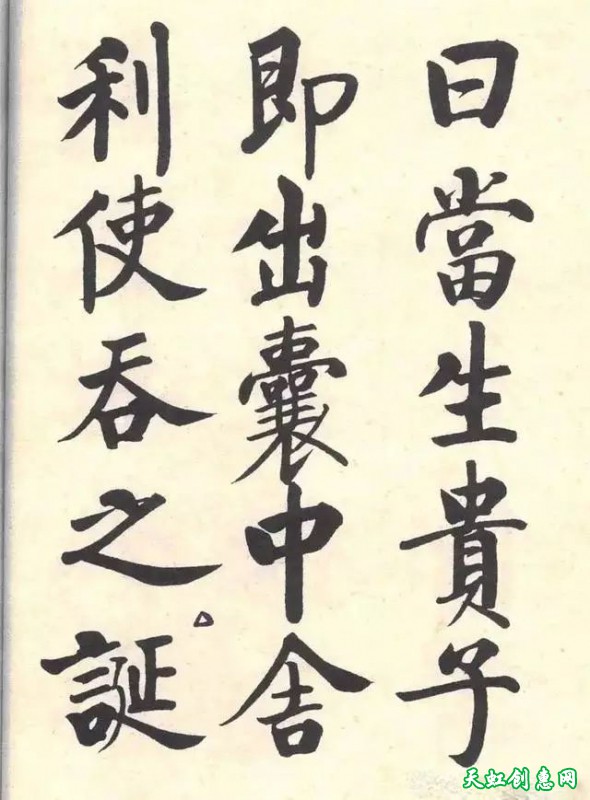 日當生貴子
即出囊中舍
利使吞之誕
天虹创惠网